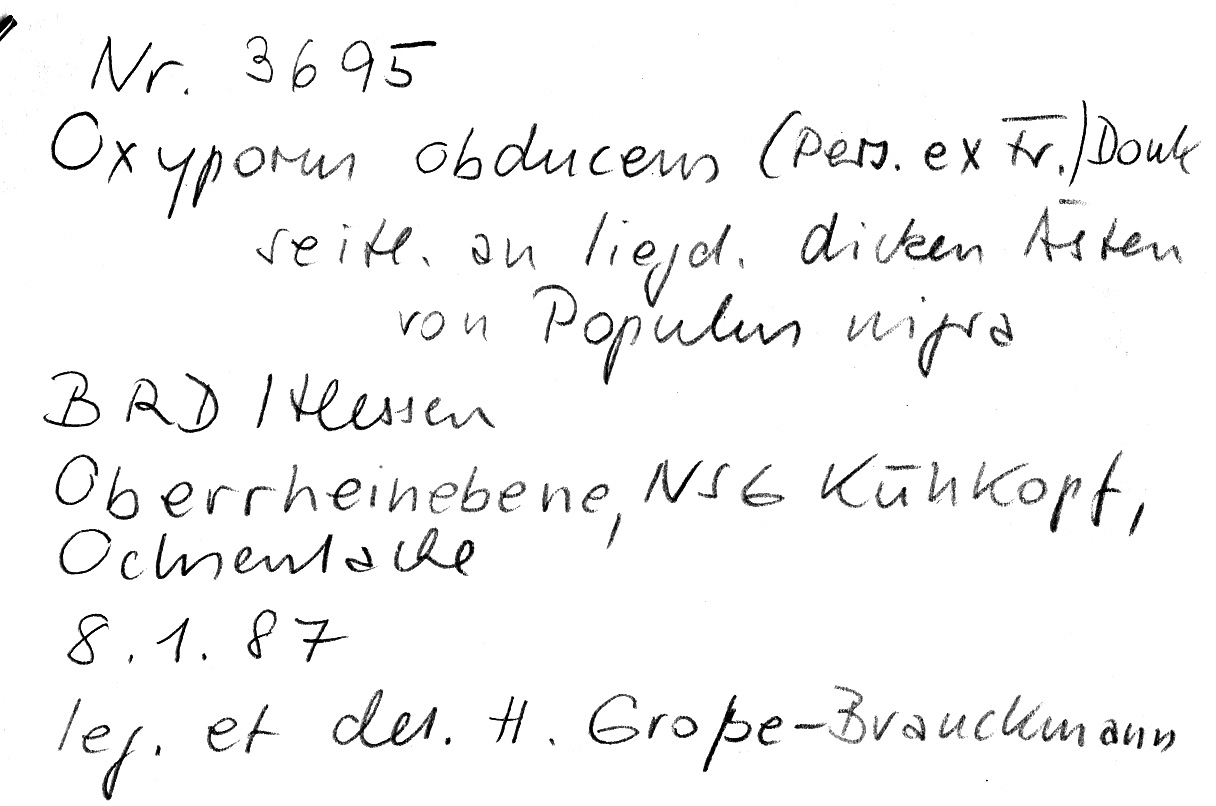 Nr. 3695
Oxyporus obducens (Pers. ex Fr.) Donk
seitl. an liegd. dicken Ästen
von Populus nigra
BRD / Hessen
Oberrheinebene, NSG Kühkopf,
Ochsenlache
8.1.87
leg. et det. H. Große-Brauckmann